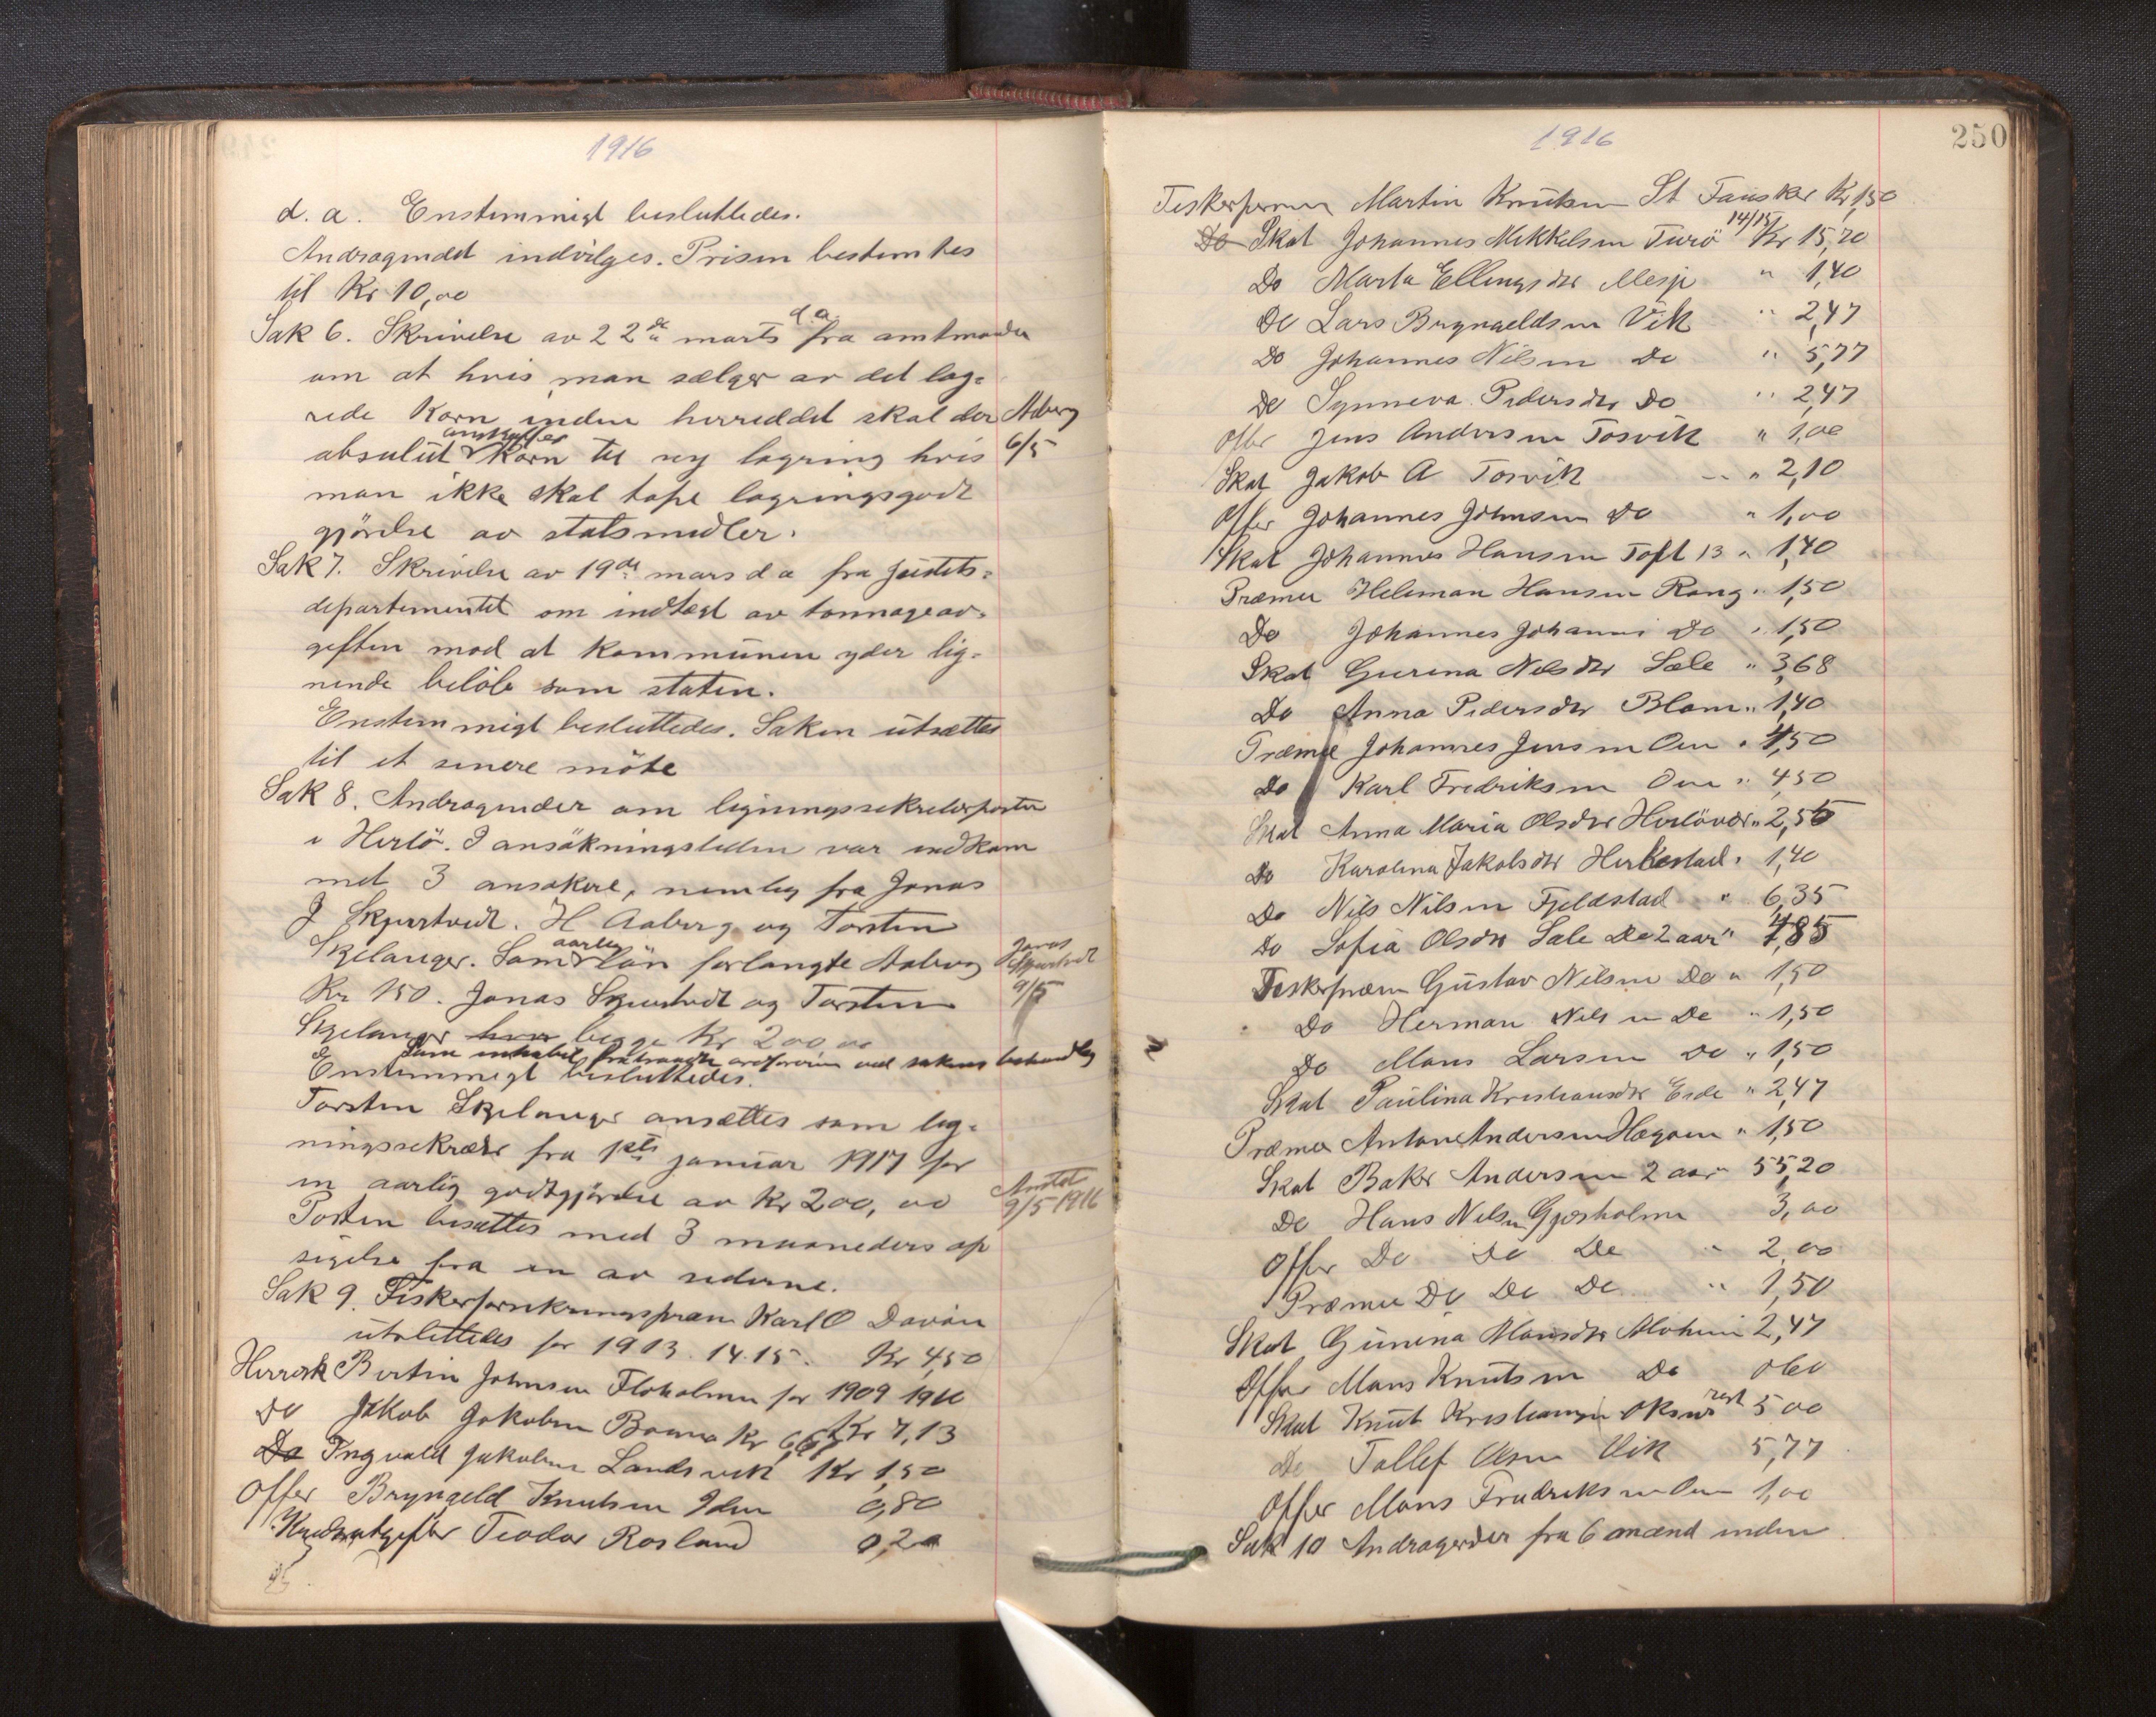 1916
d. a. Enstemmigt besluttedes.
Andragendet indvilges. Prisen bestemtes
til Kr 10,00
Sak 6. Skrivelse av 22de marts d.a. fra amtmanden
om at hvis man sælger av det lag-
rede Korn inden herreddet skal der
absolut anskaffes Korn til ny lagring hvis
Aaberg
6/5
man ikke skal tape lagringsgodt
gjörelse av statsmidler.
Sak 7. Skrivelse av 19de mars d a fra Justits-
departementet om indtægt av tonnageav-
giften mod at kommunen yder lig-
nende belöb som staten.
Enstemmigt besluttedes. Saken utsættes
til et senere möte
Sak 8. Andragender om ligningssekretærposten
i Herlö. I ansökningstiden var indkom
met 3 ansökere, nemlig fra Jonas
J Skjerstvedt. H Aaberg og Torsten
Skjelanger. Som aarlig lön forlangte Aaberg
Kr 150. Jonas Skjerstvedt og Torsten
Jonas
Skjerstvedt
9/5
Skjelanger begge Kr 200 00
Som inhabil fratraadte ordföreren ved sakens behandling
Enstemmigt besluttedes.
Torsten Skjelanger ansættes som lig-
ningssekretær fra 1ste januar 1917 for
en aarlig godtgjörelse av Kr 200,00
Anstet
9/5 1916
Posten besættes med 3 maaneders op
sigelse fra en av siderne.
Sak 9. Fiskerforsikringspræm Karl O Davöen
utslettedes for 1913. 14. 15. Kr 4,50
Herredsk Bertin Johnsen Floholmen for 1909 1910
Do Jakob Jakobsen Kr 6,67 Kr 7,13
Do Ingvald Jakobsen Landsvik Kr 1,50
Offer Bryngeld Knutsen Iden 0,80
Teodor Rosland 0,20
1916
250
Fiskerpræm Martin Knutsen St Fausker Kr 1,50
Do Skat Johannes Mikkelsen Turö 14/15 Kr 15,20
Do Marta Ellingsdtr Mesje " 1,40
Do Lars Brynjeldsen Vik " 2,47
Do Johannes Nilsen Do " 5,77
Do Synneva Pedersdtr Do " 2,47
Offer Jens Andersen Tosvik " 1,00
Skat Jakob A Tosvik " 2,10
Offer Johannes Johnsen Do " 1,00
Skat Johannes Hansen Toft 13 " 1,40
Præmie Heleman Hansen Rong " 1,50
Do Johannes Johannes Do " 1,50
Skat Gurina Nilsdtr Sæle " 3,68
Do Anna Pedersdtr Blom " 1,40
Præmie Johannes Jensen Oen " 4,50
Do Karl Fredriksen Oen " 4,50
Skat Anna Maria Olsdtr Herlövær " 2,56
Do Karolina Jakobsdtr Herkestad " 1,40
Do Nils Nilsen Fjeldstad " 6,35
Do Sofia Olsdtr Sæle Do 2 aar " 4,85
Fiskerpræm Gustav Nilsen Do " 1,50
Do Herman Nilsen Do " 1,50
Do Mons Larsen Do " 1,50
Skat Paulina Kristiansdtr Eide " 2,47
Præmie Anton Andersen Hægøen " 1,50
Skat Baker Andersen 2 aar " 55,20
Do Hans Nilsen Gjerholmen 3,00
Offer Do Do Do " 2,00
Præmie Do Do Do " 1,50
Skat Gurina Monsdtr 2,47
Offer Mons Knutsen Do 0 60
Skat Knut Kristiansen Oksnes rest 5 00
Do Tollef Olsen Vik 5,77
Offer Mons Fredriksen Oen 1,00
Sak 10 Andragender fra 6 mænd inden